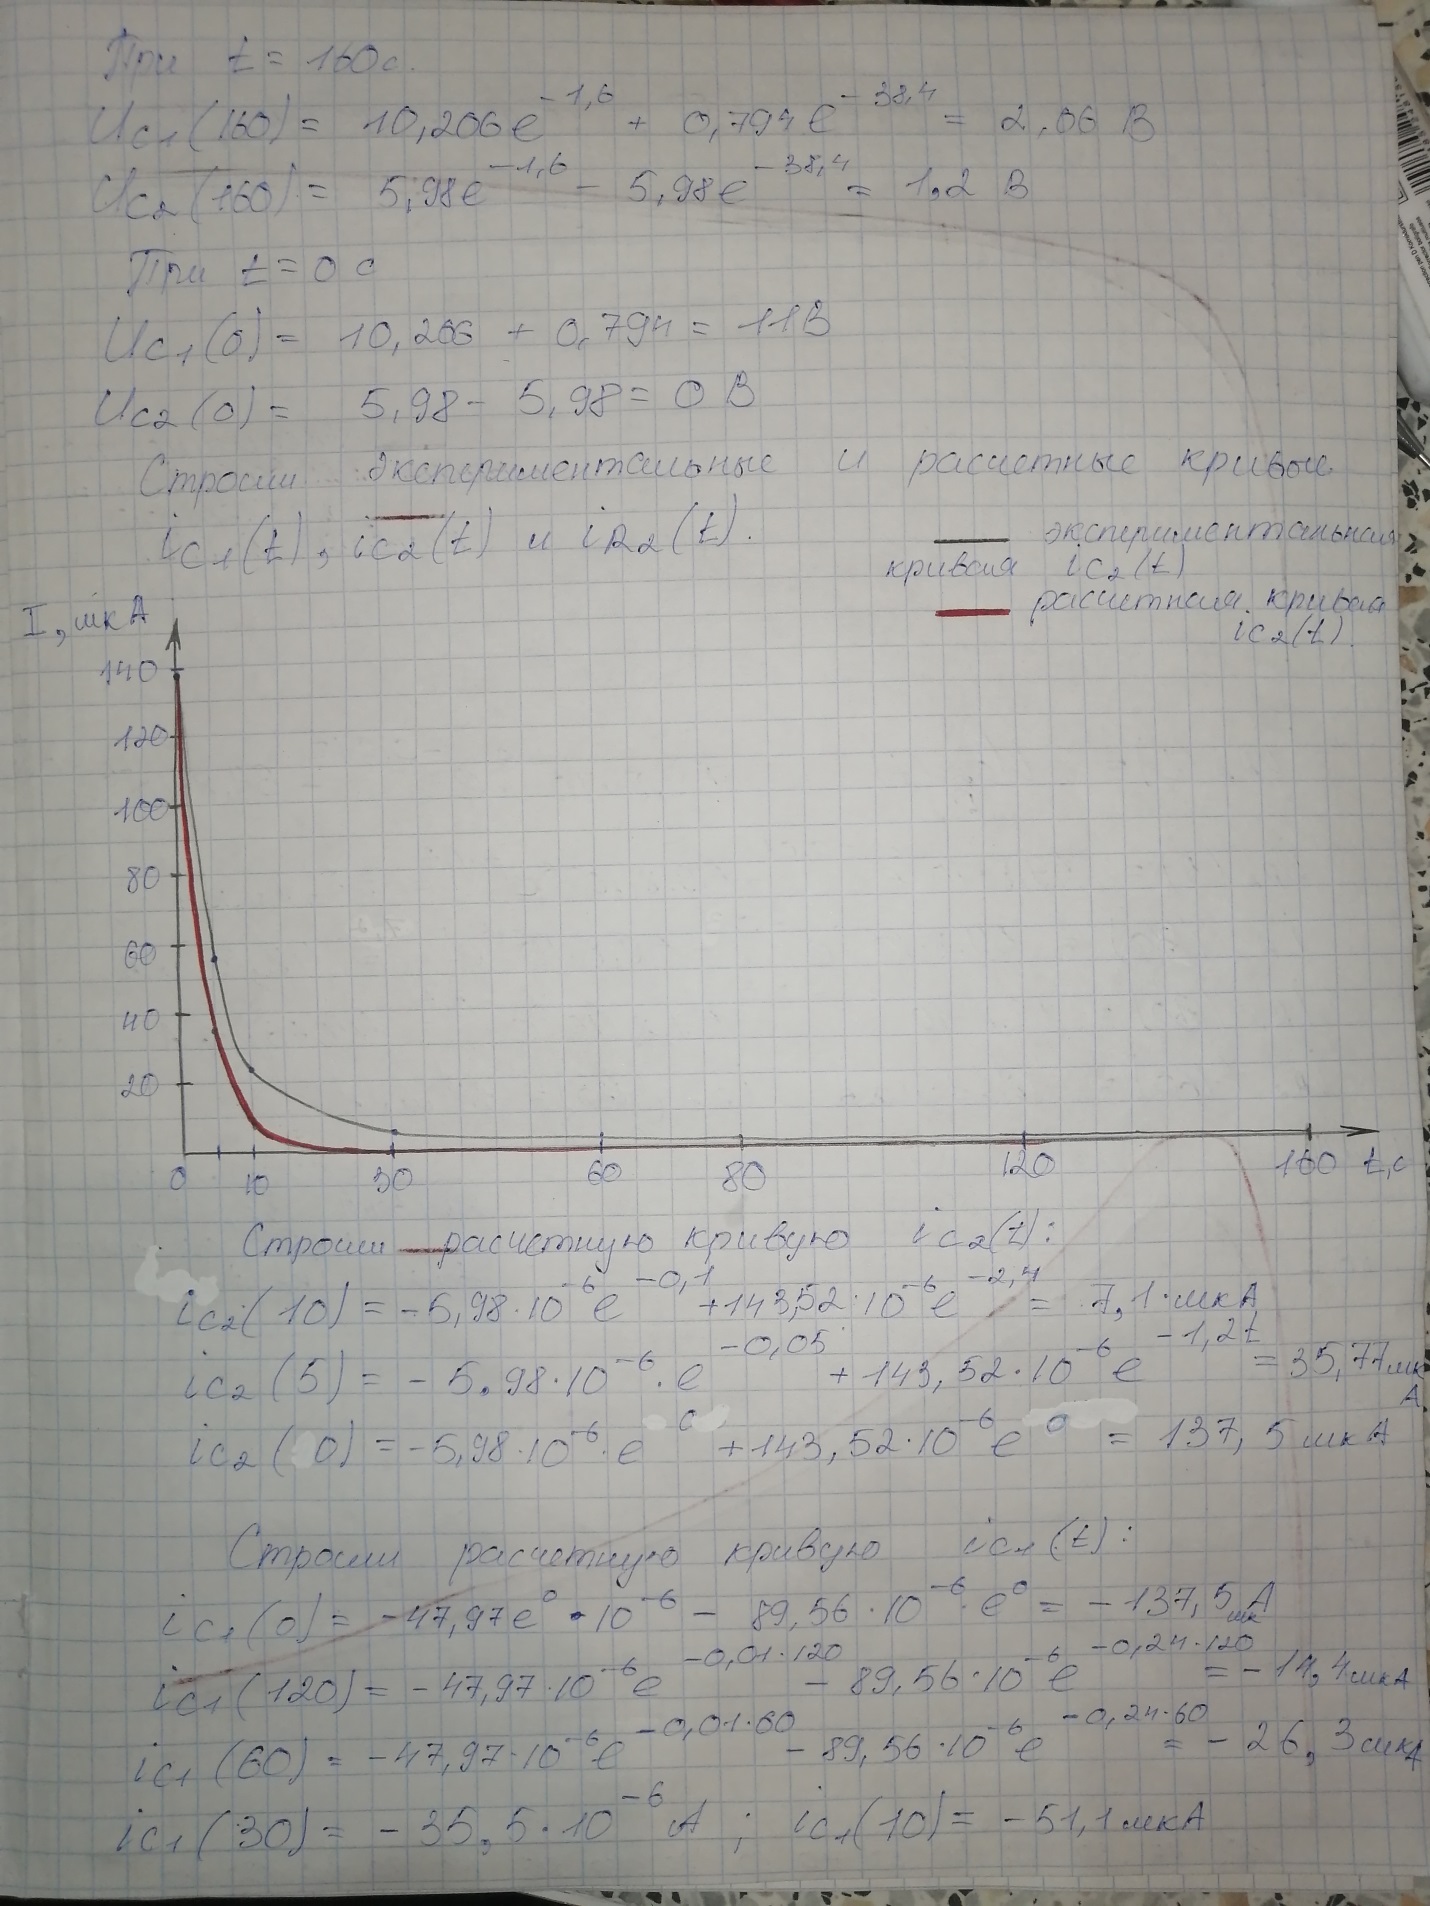 При t = 160 с.
Uc1(160) = 10,206e^-1,6 + 0,794e^-38,4 = 2,06 В
Uc2(160) = 5,98e^-1,6 - 5,98e^-38,4 = 1,2 В
При t = 0 с
Uc1(0) = 10,206 + 0,794 = 11 В
Uc2(0) = 5,98 - 5,98 = 0 В
Строим экспериментальные и расчетные кривые
ic1(t), ic2(t) и iR2(t).
экспериментальная
кривая ic2(t)
расчетная кривая
ic2(t).
I, мкА
140
120
100
80
60
40
20
0 10 30 60 80 120 160 t,c
Строим расчетную кривую ic2(t):
ic2(10) = -5,98·10^-6 e^-0,1 + 143,52·10^-6 e^-2,4 = 7,1 мкА
ic2(5) = -5,98·10^-6·e^-0,05 + 143,52·10^-6 e^-1,2t = 35,77 мкА
ic2(0) = -5,98·10^-6·e^0 + 143,52·10^-6 e^0 = 137,5 мкА
Строим расчетную кривую ic1(t):
ic1(0) = -47,97e^0·10^-6 - 89,56·10^-6·e^0 = -137,5 мкА
ic1(120) = -47,97·10^-6 e^-0,01·120 - 89,56·10^-6 e^-0,24·120 = -14,4 мкА
ic1(60) = -47,97·10^-6 e^-0,01·60 - 89,56·10^-6 e^-0,24·60 = -26,3 мкА
ic1(30) = -35,5·10^-6 А ; ic1(10) = -51,1 мкА